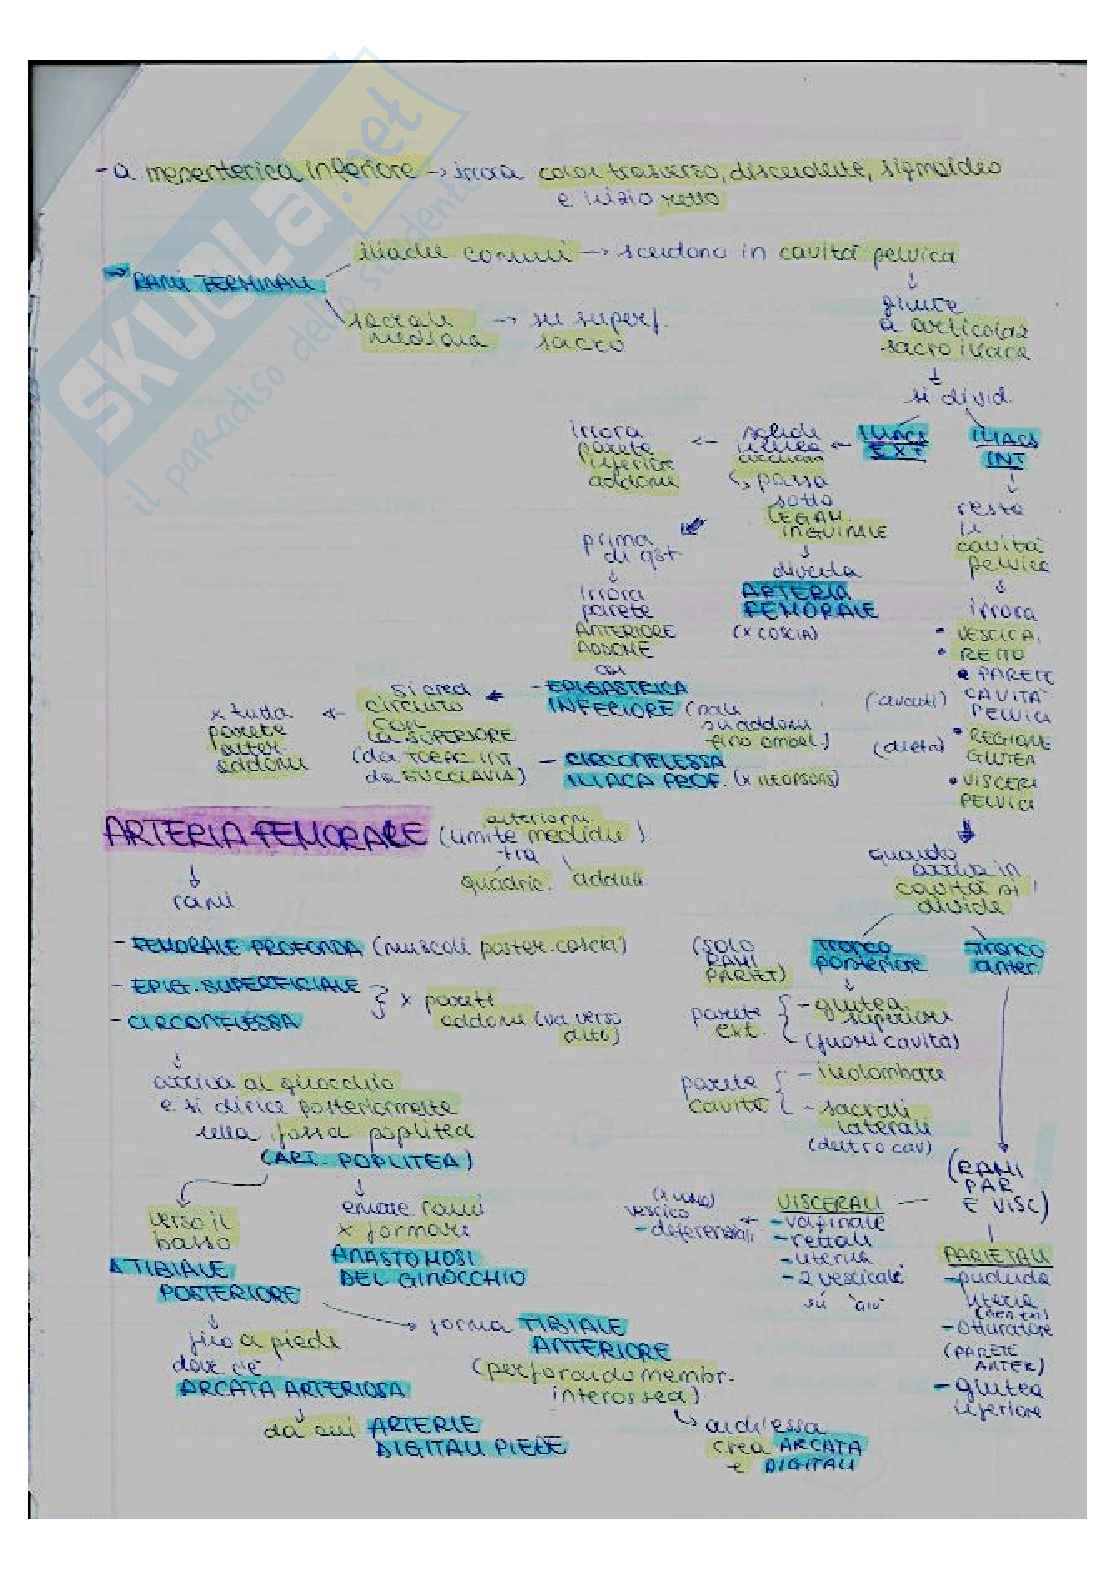 SKUOLA.net
il paradiso dello studente
- a mesenterica inferiore → irrora colon trasverso, discendente, sigmoideo
e inizio retto
→ RAMI TERMINALI
iliache comuni → scendono in cavità pelvica
sacrale → su superf.
mediana sacro
giunte
a articolaz
sacro iliaca
↓
si divid.
ILIACA
EXT
ILIACA
INT
←
passa
sotto
LEGAM.
INGUINALE
↓
diventa
ARTERIA
FEMORALE
(x COSCIA)
← irrora
parete
inferior
addome
prima
di qst
↓
irrora
parete
ANTERIORE
ADDOME
con
- EPIGASTRICA
INFERIORE (sale
su addome
fino ombel.)
- CIRCONFLESSA
ILIACA PROF. (x ILEOPSOAS)
← si crea
circuito
con
la SUPERIORE
(da TORAC INT
da SUCCLAVIA)
← x tutta
parete
anter.
addome
↓
resta
in
cavità
pelvica
↓
irrora
• VESCICA,
• RETTO
• PARETE
CAVITA'
PELVICA
(avanti)
• REGIONE
GLUTEA
(dietro)
• VISCERI
PELVICI
↓
quando
arriva in
cavità si
divide
Tronco
posteriore
Tronco
anter.
(SOLO
RAMI
PARIET)
parete
ext.
- glutea
superiori
(fuori cavità)
parete
cavità
- ileolombare
- sacrali
laterali
(dentro cav)
(RAMI
PAR
E VISC)
VISCERALI
- vaginale
- rettali
- uterina
- 2 vescicale
su "giù"
(x uomo)
vescico
- deferenziali
PARIETALI
- pudenda
interna
- otturatore
(PARETE
ANTER)
- glutea
inferiore
ARTERIA FEMORALE (limite mediale)
anteriorm
tra
quadric. addutt
↓
rami
- FEMORALE PROFONDA (muscoli poster. coscia)
- EPIG. SUPERFICIALE
- CIRCONFLESSA
x parete
addome (va verso
alto)
↓
arriva al ginocchio
e si dirige posteriormente
nella fossa poplitea
(ART. POPLITEA)
verso il
basso
TIBIALE
POSTERIORE
emette rami
x formare
ANASTOMOSI
DEL GINOCCHIO
↓
fino a piede
dove c'è
ARCATA ARTERIOSA
↓
da cui ARTERIE
DIGITALI PIEDE
→ forma TIBIALE
ANTERIORE
(perforando membr.
interossea)
↳ anch'essa
crea ARCATA
e DIGITALI